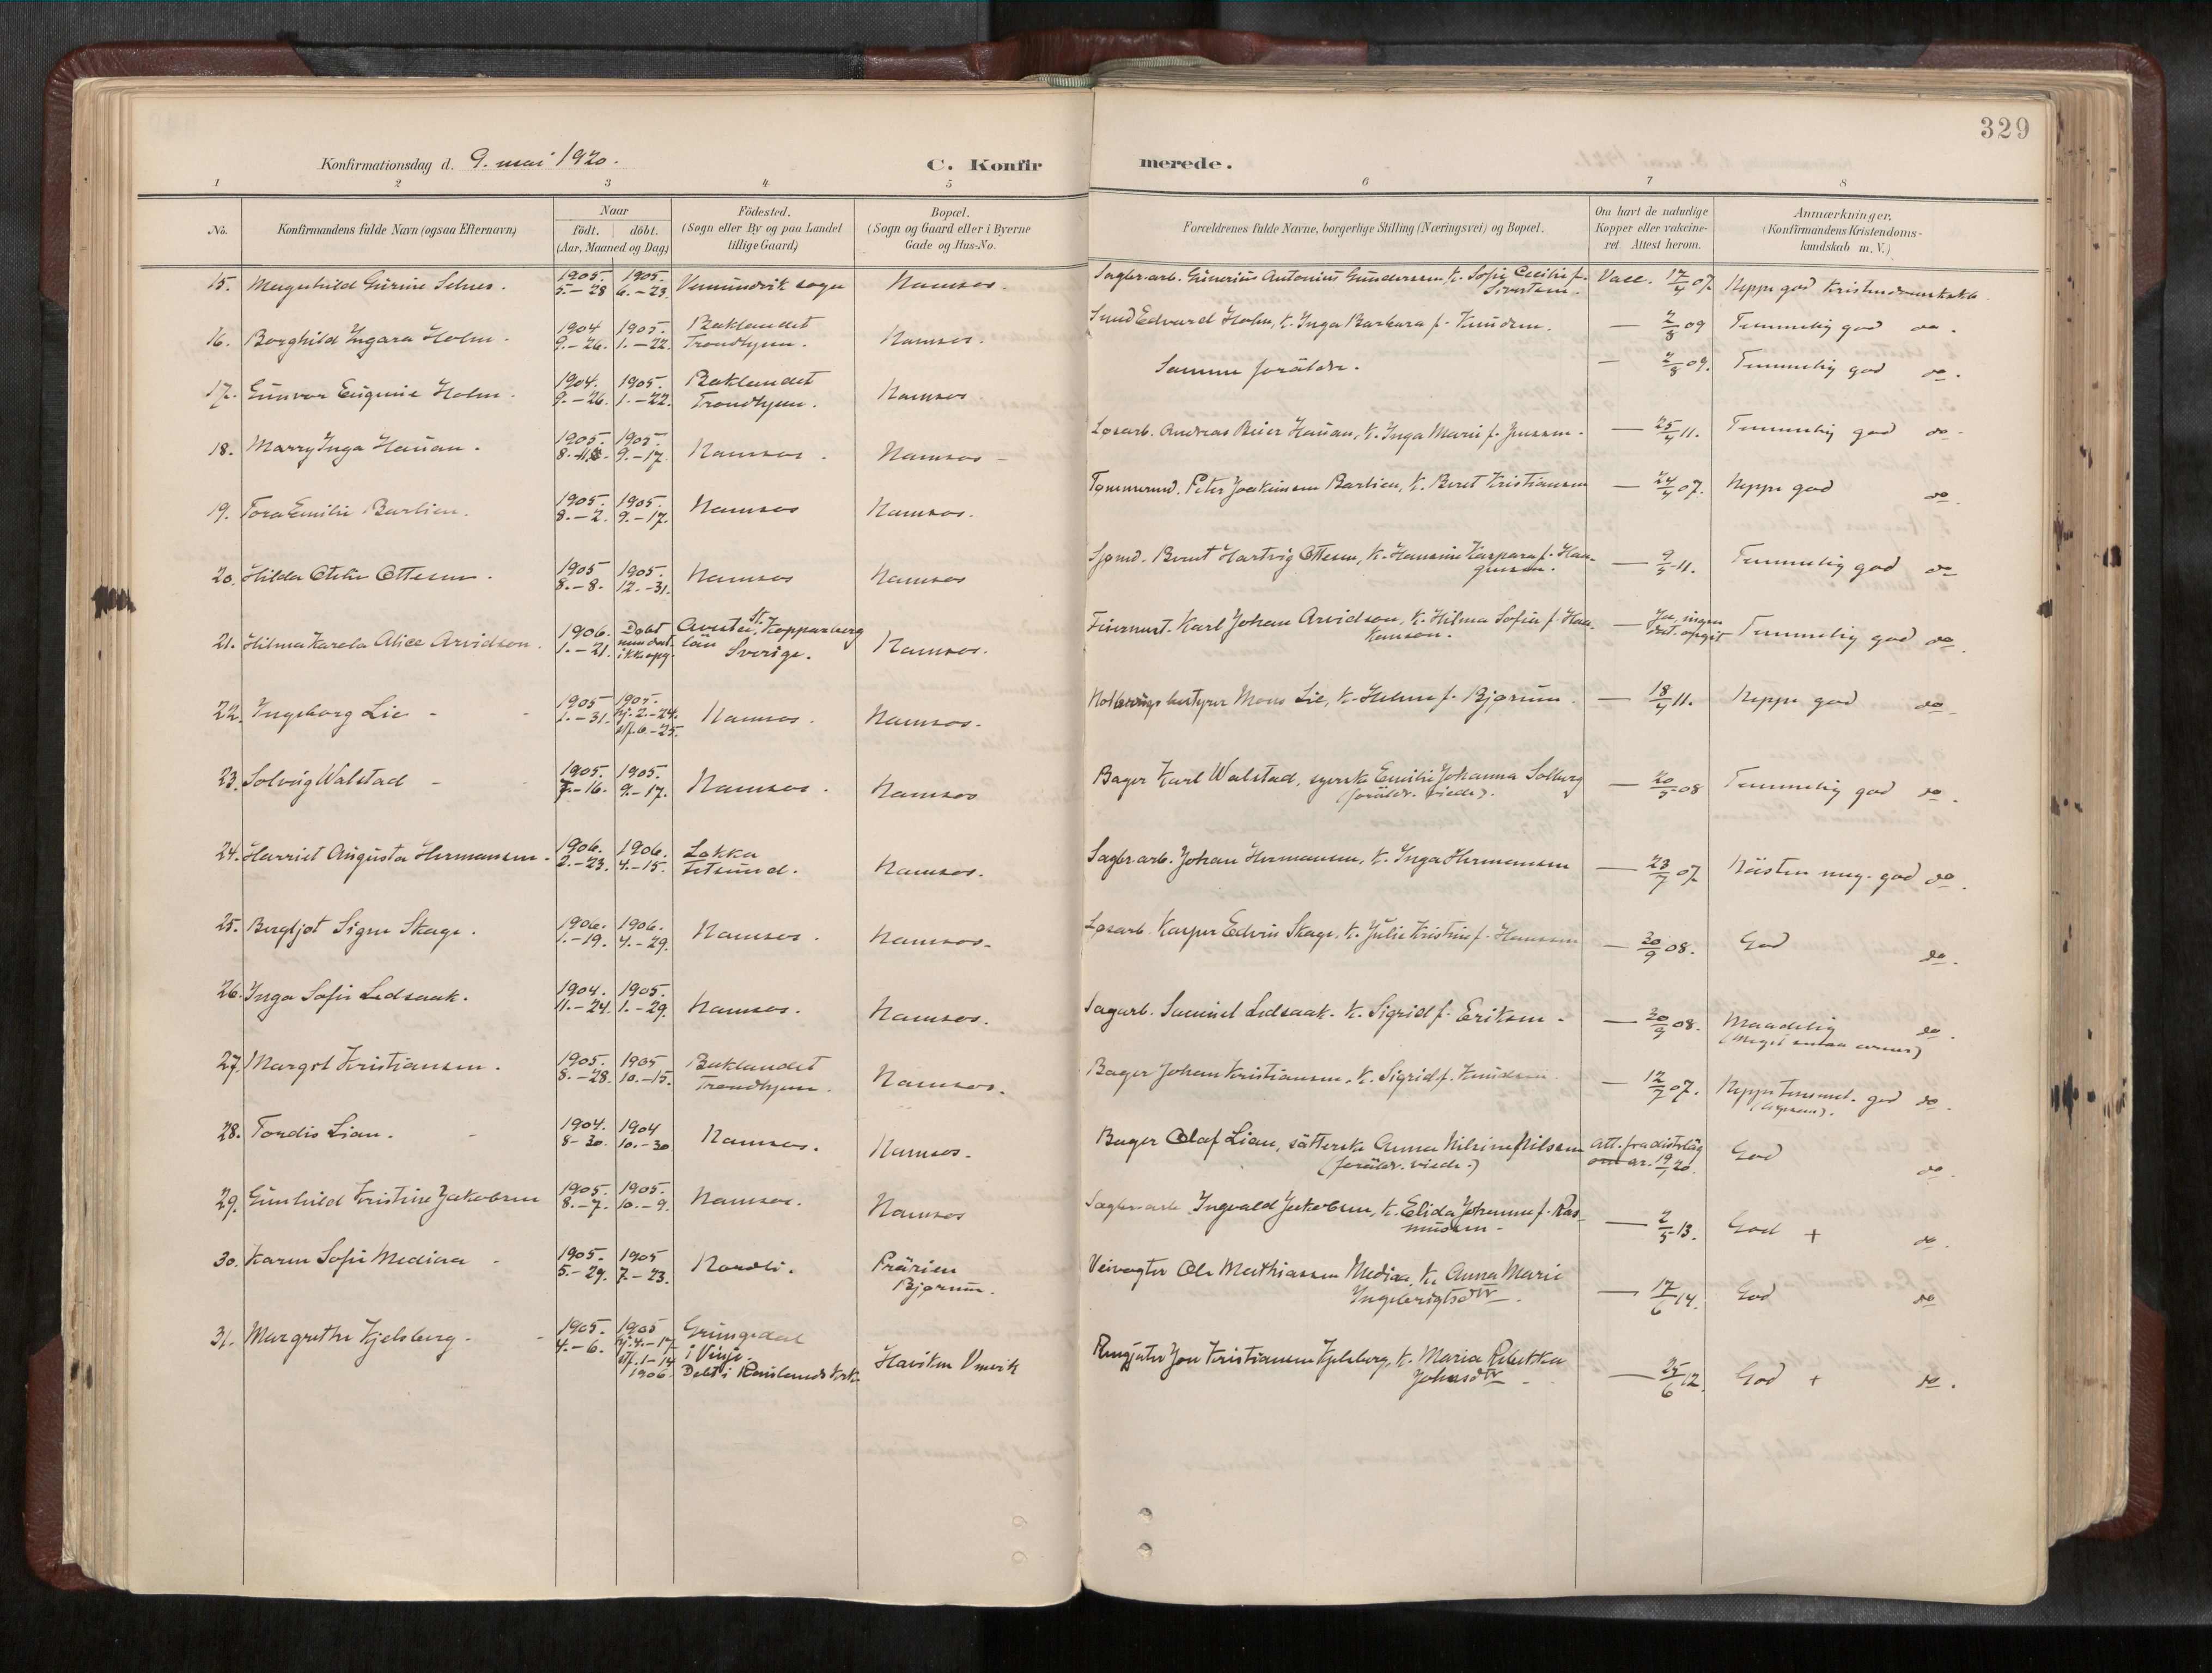 329
Konfirmationsdag d. 9. mai 1920.
C. Konfirmerede.
1 2 3 4 5 6 7 8
No.
Konfirmandens fulde Navn (ogsaa Efternavn)
Naar
födt. döbt.
(Aar, Maaned og Dag)
Födested.
(Sogn eller By og paa Landet
tillige Gaard)
Bopæl.
(Sogn og Gaard eller i Byerne
Gade og Hus-No.
Forældrenes fulde Navne, borgerlige Stilling (Næringsvei) og Bopæl.
Om havt de naturlige
Kopper eller vakcine-
ret. Attest herom.
Anmærkninger.
(Konfirmandens Kristendoms-
kundskab m. V.)
15. Magnhild Gurine Selnes. 1905. 5.-28 1905. 6.-23. Vemundvik sogn Namsos. Sagbr.arb. Antonius Gundersen, K. Sofie Cecilie f. Sivertsen. Vacc. 17/4 07. Neppe god Kristendomskskb.
16. Borghild Ingara Holm. 1904 9.-26. 1905. 1.-22. Baklandet Trondhjem. Namsos. Smed Edvard Holm, K. Inga Barbara f. Knudsen. — 2/8 09 Temmelig god do.
17. Gunvor Eugenie Holm. 1904. 9.-26. 1905. 1.-22. Baklandet Trondhjem. Namsos. Samme forældre. — 2/8 09. Temmelig god do.
18. Marry Inga Hauan. 1905. 1905. 9.-17. Namsos. Namsos - Løsarb. Andreas Hauan, K. Inga Marie f. Jenssen. — 25/4 11. Temmelig god do.
19. Tora Emilie Barlien. 1905. 8.-2. 1905. 9.-17. Namsos Namsos. Tømmermd. Peter Joakimsen Barlien, K. Beret Kristiansen — 24/4 07. Neppe god do.
20. Hilda Otelie Ottesen. 1905 8.-8. 1905. 12.-31. Namsos Namsos Sjømd. Bernt Hartvig Ottesen, K. Hansine Kaspara f. Haagensen. — 9/5 11. Temmelig god do
21. Hilma Karola Alice Arvidson. 1906. 1.-21. Døbt men dat. ikke opg. Avesta, St. Kopparberg län Sverige. Namsos. Karl Johan Arvidson, K. Hilma Sofia f. Haakanson. — Ja, ingen dat. opgit Temmelig god do.
22. Ingeborg Lie - 1905 1.-31. 1905. hj. 2.-24. stf. 6.-25. Namsos. Namsos. bestyrer Mons Lie, K. Helene f. Bjørum. — 18/4 11. Neppe god do
23. Solveig Walstad - 1905. 7.-16. 1905. 9.-17. Namsos. Namsos Bager Karl Walstad, syerske Emilie Johanna Solberg (foräldr. viede). — 20/5 08 Temmelig god do.
24. Harriet Augusta Hermansen. 1906. 2.-23. 1906. 4.-15. Lokka Fetsund. Namsos. Sagbr.arb. Johan Hermansen, K. Inga Hermansen — 23/7 07. Nästen meg. god do.
25. Bergljot Signe Skage. 1906. 1.-19. 1906. 4.-29. Namsos. Namsos. Løsarb. Kasper Edvin Skage, K. Julie Kristine f. Hanssen — 20/9 08. God do.
26. Inga Sofie Ledsaak. 1904. 11.-24. 1905. 1.-29. Namsos. Namsos. Sagarb. Samuel Ledsaak. K. Sigrid f. Eriksen. — 20/9 08. Maadelig do. (Meget smaa evner)
27. Margot Kristiansen. 1905. 8.-28. 1905 10.-15. Baklandet Trondhjem. Namsos. Bager Johan Kristiansen, K. Sigrid f. Knudsen. — 12/7 07. Neppe temmel. god do.
28. Tordis Lian. - 1904. 8-30. 1904 10.-30 Namsos. Namsos. Bager Olaf Lian, sätterske Anna Nilsine Nilssen (foräldr. viede.) Att. fra distrläg 19/1 20. God do.
29. Gunhild Kristine Jakobsen 1905. 8.-7. 1905. 10.-9. Namsos. Namsos Sagbr.arb. Ingvald Jakobsen, K. Elida Johanne f. Rasmussen. — 2/5 13. God + do.
30. Karen Sofie Mediaa - 1905. 5.-29. 1905 7.-23. Nordli. Prärien Bjørum. Veivogter Ole Mathiassen Mediaa, K. Anna Marie Ingebrigtsdtr. — 17/6 14. God do
31. Margrethe Kjelsberg. - 1905. 4.-6. 1905 hj. 4.-17 stf. 1-14 1906. Grungedal i Vinje. Døbt i Raulands kirke Haviken Vmvik Jon Kristiansen Kjelsberg, K. Maria Rebekka Johnsdtr. — 25/6 12. God + do.